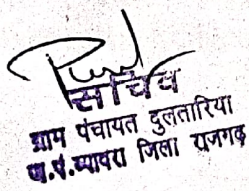 सचिव
ग्राम पंचायत दुलतारिया
ज.पं.ब्यावरा जिला राजगढ़